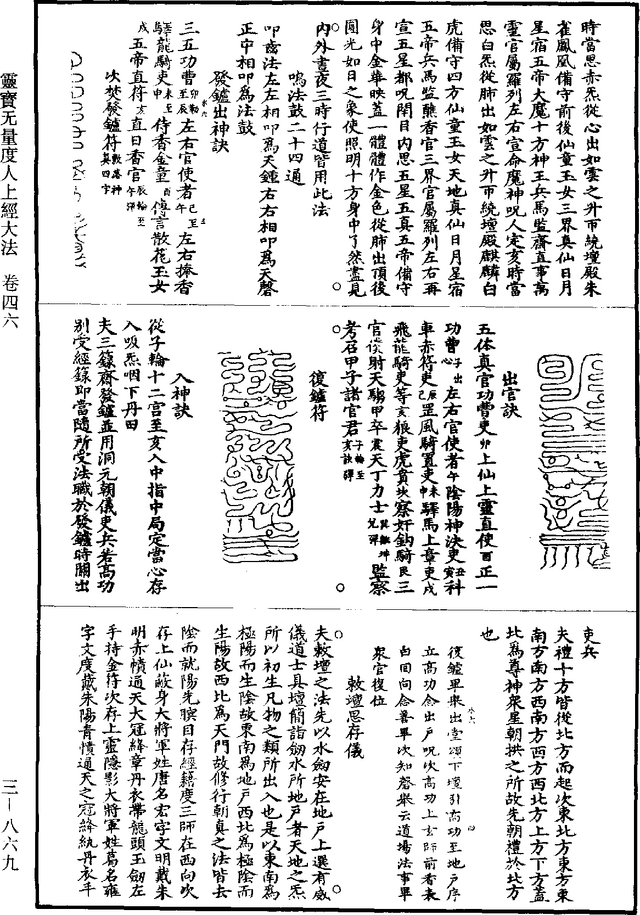 時當思赤炁從心出如雲之升帀繞壇殿朱
雀鳳凰備守前後仙童玉女三界真仙日月
星宿五帝大魔十方神王兵馬監齋直事萬
靈官屬羅列左右宣命魔神呪人定亥時當
思白炁從肺出如雲之升帀繞壇殿麒麟白
虎備守四方仙童玉女天地真仙日月星宿
五帝兵馬監醮香官三界官屬羅列左右再
宣五星都呪閉目內思五星五真五帝備守
身中金華映蓋一體體作金色從肺出項後
圓光如日之象使照明十方身中了然盡見
內外晝夜三時行道皆用此法
鳴法鼓二十四通
叩齒法左左相叩爲天鍾右右相叩爲天磬
正中相叩爲法鼓
發鑪出神訣
三五功曹左右官使者左右捧香
驛龍騎吏侍香金童傳言散花玉女
五帝直符直日香官
次焚發鑪符
出官訣
五体真官功曹吏卯上仙上靈直使酉正一
功曹左右官使者午陰陽神決吏丑寅科
車赤符吏罡風騎置吏驛馬上章吏戌
飛龍騎吏等亥狼吏虎賁坎察奸鈎騎艮三
官僕射天騶甲卒震天丁力士監察
考召甲子諸官君
復鑪符
入神訣
從子輪十二宫至亥入中指中局定當心存
入吸炁咽下丹田
夫三籙齋發鑪並用洞元朝儀吏兵若高功
別受經籙即當隨所受法職於發鑪時關出
吏兵
夫禮十方皆從北方而起次東北方東方東
南方南方西南方西方西北方上方下方蓋
北爲尊神衆星朝拱之所故先朝禮於北方
也
復鑪畢衆出堂頌下壇引高功至地戶序
立高功念出戶呪次高功上玄師前香衆
自回向念善畢次知磬舉云道場法事畢
衆官復位
敕壇思存儀
夫敕壇之法先以水劒安在地戶上選有威
儀道士具壇簡詣劒水所地戶者天地之炁
所以初生凡物之類所出入也是以東南爲
極陽而生陰故東南爲地戶西北爲極陰而
生陽故西北爲天門故修行朝真之法皆去
陰而就陽先瞑目存經籍度三師在西向次
存上仙敵身大將軍姓唐名宏字文明戴朱
明赤幘通天大冠絳章丹衣帶龍頭玉劒左
手持金符次存上靈隱影大將軍姓葛名雍
字文度戴朱陽青幘通天之冠絳紈丹衣平
靈寶无量度人上經大法　卷四六
三—八六九